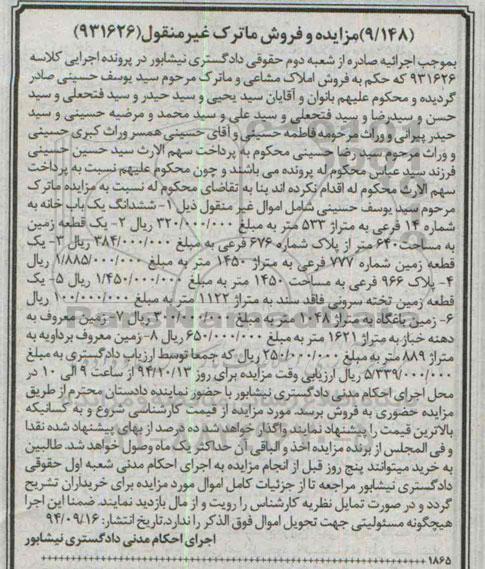 (۹/۱۴۸)مزایده و فروش ماترک غیر منقول(۹۳۱۶۲۶)
بموجب اجرائیه صادره از شعبه دوم حقوقی دادگستری نیشابور در پرونده اجرایی کلاسه
۹۳۱۶۲۶ که حکم به فروش املاک مشاعی و ماترک مرحوم سید یوسف حسینی صادر
گردیده و محکوم علیهم بانوان و آقایان سید یحیی و سید حیدر و سید فتحعلی و سید
حسن و سیدرضا و سید فتحعلی و سید علی و سید محمد و مرضیه حسینی و سید
حیدر پیرانی و وراث مرحومه فاطمه حسینی و آقای حسینی همسر وراث کبری حسینی
و وراث مرحوم سید رضا حسینی محکوم به پرداخت سهم الارث سید حسین حسینی
فرزند سید عباس محکوم له پرونده می باشند و چون محکوم علیهم نسبت به پرداخت
سهم الارث محکوم له اقدام نکرده اند بنا به تقاضای محکوم له نسبت به مزایده ماترک
مرحوم سید یوسف حسینی شامل اموال غیر منقول ذیل ۱- ششدانگ یک باب خانه به
شماره ۱۴ فرعی به متراژ ۵۳۳ متر به مبلغ ۳۲۰/۰۰۰/۰۰۰ ریال ۲- یک قطعه زمین
به مساحت ۶۴۰ متر از پلاک شماره ۶۷۶ فرعی به مبلغ ۳۸۴/۰۰۰/۰۰۰ ریال ۳- یک
قطعه زمین شماره ۷۷۷ فرعی به متراژ ۱۴۵۰ متر به مبلغ ۱/۸۸۵/۰۰۰/۰۰۰ ریال
۴- پلاک ۹۶۶ فرعی به مساحت ۱۴۵۰ متر به مبلغ ۱/۴۵۰/۰۰۰/۰۰۰ ریال ۵- یک
قطعه زمین تخته سرونی فاقد سند به متراژ ۱۱۲۲ متر به مبلغ ۱۰۰/۰۰۰/۰۰۰ ریال
۶- زمین باغگاه به متراژ ۱۰۴۸ متر به مبلغ ۳۰۰/۰۰۰/۰۰۰ ریال ۷- زمین معروف به
دهنه خباز به متراژ ۱۶۲۱ متر به مبلغ ۶۵۰/۰۰۰/۰۰۰ ریال ۸- زمین معروف بردآویه به
متراژ ۸۸۹ متر به مبلغ ۲۵۰/۰۰۰/۰۰۰ ریال که جمعا توسط ارزیاب دادگستری به مبلغ
۵/۳۳۹/۰۰۰/۰۰۰ ریال ارزیابی وقت مزایده برای روز ۹۴/۱۰/۱۳ از ساعت ۹ الی ۱۰ در
محل اجرای احکام مدنی دادگستری نیشابور با حضور نماینده دادستان محترم از طریق
مزایده حضوری به فروش برسد. مورد مزایده از قیمت کارشناسی شروع و به کسانیکه
بالاترین قیمت را پیشنهاد نمایند واگذار خواهد شد ده درصد از بهای پیشنهاد شده نقدا
و فی المجلس از برنده مزایده اخذ و الباقی آن حداکثر یک ماه وصول خواهد شد. طالبین
به خرید میتوانند پنج روز قبل از انجام مزایده به اجرای احکام مدنی شعبه اول حقوقی
دادگستری نیشابور مراجعه تا از جزئیات کامل اموال مورد مزایده برای خریداران تشریح
گردد و در صورت تمایل نظریه کارشناس را رویت و از مال بازدید نمایند. ضمنا این اجرا
هیچگونه مسئولیتی جهت تحویل اموال فوق الذکر را ندارد.تاریخ انتشار: ۹۴/۰۹/۱۶
اجرای احکام مدنی دادگستری نیشابور
۱۸۶۵